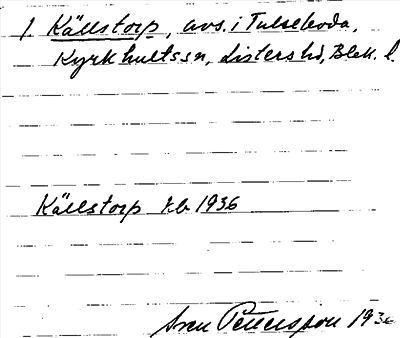 1. Källstorp, avs. i Tulseboda,
Kyrkhultssn, Listers hd, Blek. l.
Källstorp kb 1936
Sven Petersson 1936